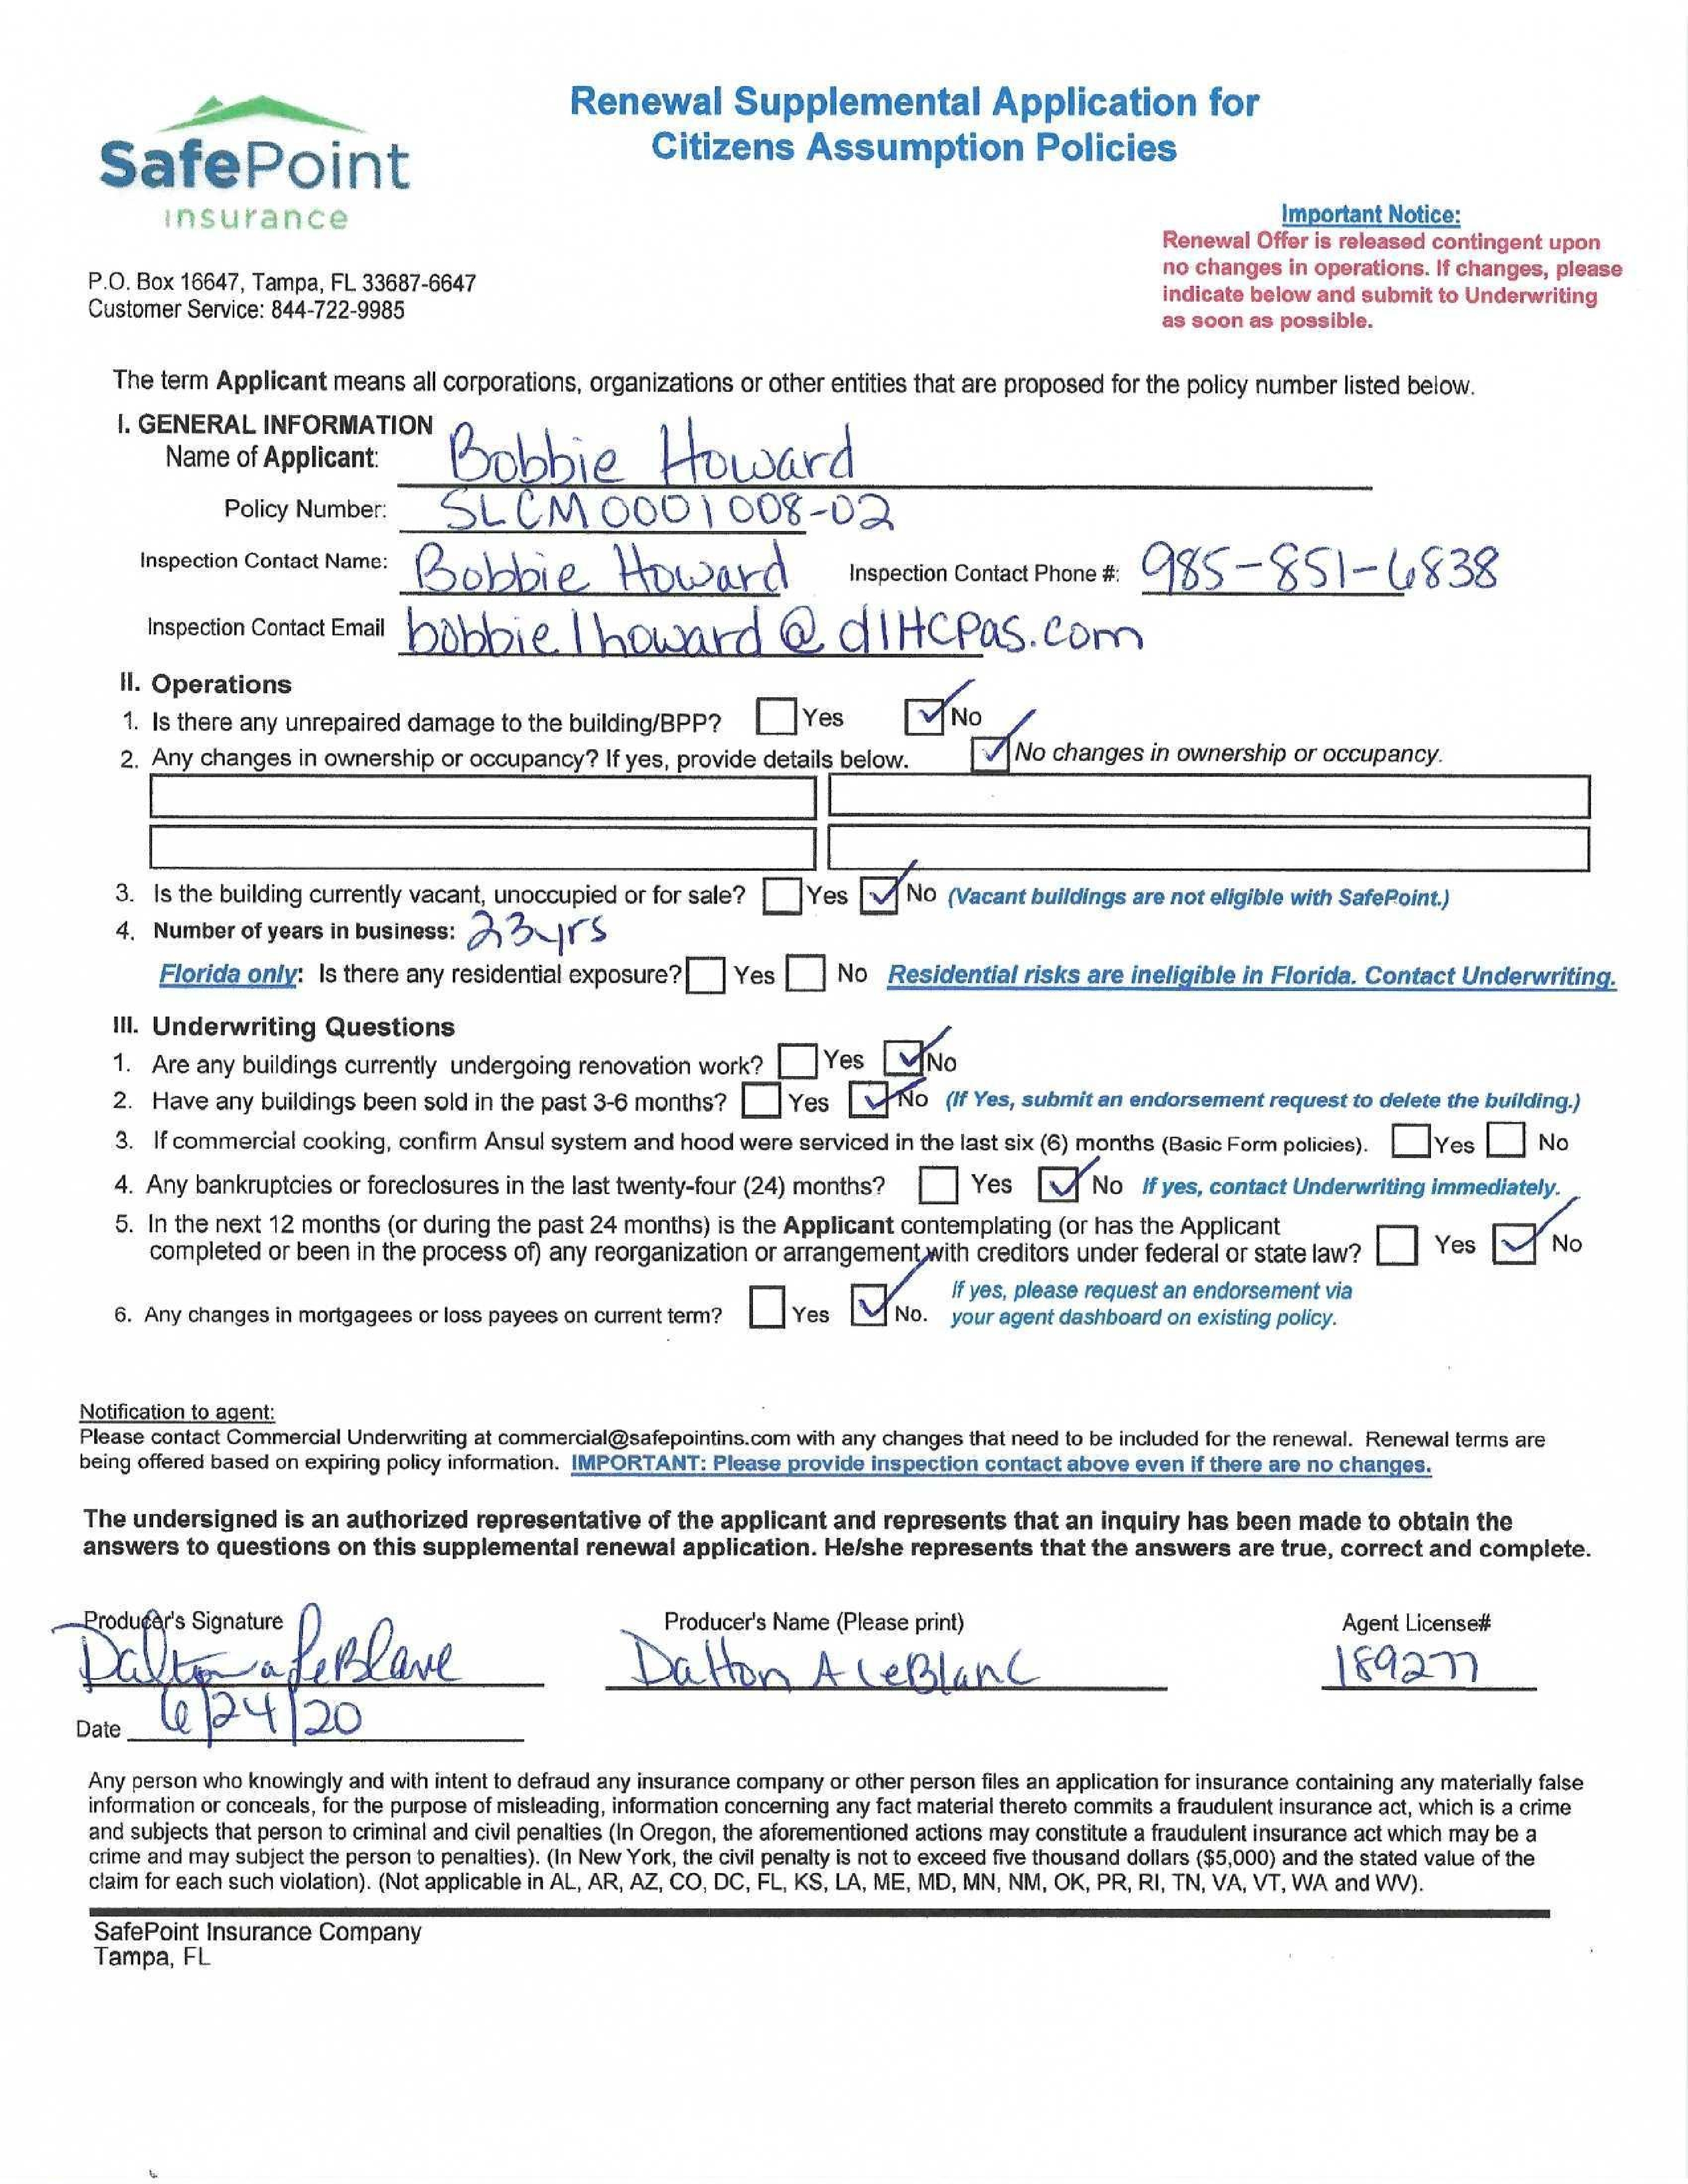 SafePoint
insurance
Renewal Supplemental Application for
Citizens Assumption Policies
Important Notice:
Renewal Offer is released contingent upon
no changes in operations. If changes, please
indicate below and submit to Underwriting
as soon as possible.
P.O. Box 16647, Tampa, FL 33687-6647
Customer Service: 844-722-9985
The term Applicant means all corporations, organizations or other entities that are proposed for the policy number listed below.
I. GENERAL INFORMATION
Name of Applicant: Bobbie Howard
Policy Number: SLCM0001008-02
Inspection Contact Name: Bobbie Howard Inspection Contact Phone #: 985-851-6838
Inspection Contact Email bobbielhoward@dlHCPas.com
II. Operations
1. Is there any unrepaired damage to the building/BPP? Yes No
2. Any changes in ownership or occupancy? If yes, provide details below. No changes in ownership or occupancy.
3. Is the building currently vacant, unoccupied or for sale? Yes No (Vacant buildings are not eligible with SafePoint.)
4. Number of years in business: 23yrs
Florida only: Is there any residential exposure? Yes No Residential risks are ineligible in Florida. Contact Underwriting.
III. Underwriting Questions
1. Are any buildings currently undergoing renovation work? Yes No
2. Have any buildings been sold in the past 3-6 months? Yes No (If Yes, submit an endorsement request to delete the building.)
3. If commercial cooking, confirm Ansul system and hood were serviced in the last six (6) months (Basic Form policies). Yes No
4. Any bankruptcies or foreclosures in the last twenty-four (24) months? Yes No If yes, contact Underwriting immediately.
5. In the next 12 months (or during the past 24 months) is the Applicant contemplating (or has the Applicant
completed or been in the process of) any reorganization or arrangement with creditors under federal or state law? Yes No
6. Any changes in mortgagees or loss payees on current term? Yes No. If yes, please request an endorsement via
your agent dashboard on existing policy.
Notification to agent:
Please contact Commercial Underwriting at commercial@safepointins.com with any changes that need to be included for the renewal. Renewal terms are
being offered based on expiring policy information. IMPORTANT: Please provide inspection contact above even if there are no changes.
The undersigned is an authorized representative of the applicant and represents that an inquiry has been made to obtain the
answers to questions on this supplemental renewal application. He/she represents that the answers are true, correct and complete.
Producer's Signature Producer's Name (Please print) Agent License#
Dalton a LeBlanc Dalton A LeBlanc 189277
Date 6/24/20
Any person who knowingly and with intent to defraud any insurance company or other person files an application for insurance containing any materially false
information or conceals, for the purpose of misleading, information concerning any fact material thereto commits a fraudulent insurance act, which is a crime
and subjects that person to criminal and civil penalties (In Oregon, the aforementioned actions may constitute a fraudulent insurance act which may be a
crime and may subject the person to penalties). (In New York, the civil penalty is not to exceed five thousand dollars ($5,000) and the stated value of the
claim for each such violation). (Not applicable in AL, AR, AZ, CO, DC, FL, KS, LA, ME, MD, MN, NM, OK, PR, RI, TN, VA, VT, WA and WV).
SafePoint Insurance Company
Tampa, FL